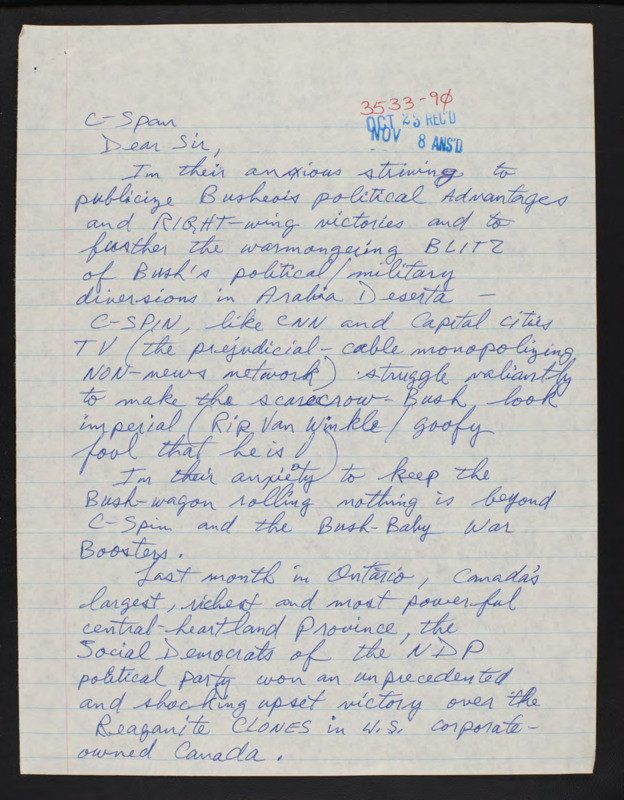 3533-90
OCT 23 REC'D
NOV 8 ANS'D
C-Span
Dear Sir,
In their anxious striving to
publicize Busheois political Advantages
and RIGHT-wing victories and to
further the warmongering BLITZ
of Bush's political/military
diversions in Arabia Deserta —
C-SPIN, like CNN and Capital cities
TV (the prejudicial-cable monopolizing
NON-news network) struggle valiantly
to make the scarecrow-Bush, look
imperial (Rip Van Winkle / goofy
fool that he is!)
In their anxiety to keep the
Bush-wagon rolling nothing is beyond
C-Spin and the Bush-Baby War
Boosters.
Last month in Ontario, Canada's
largest, richest and most powerful
central-heartland Province, the
Social Democrats of the NDP
political party won an unprecedented
and shocking upset victory over the
Reaganite CLONES in U.S. corporate-
owned Canada.